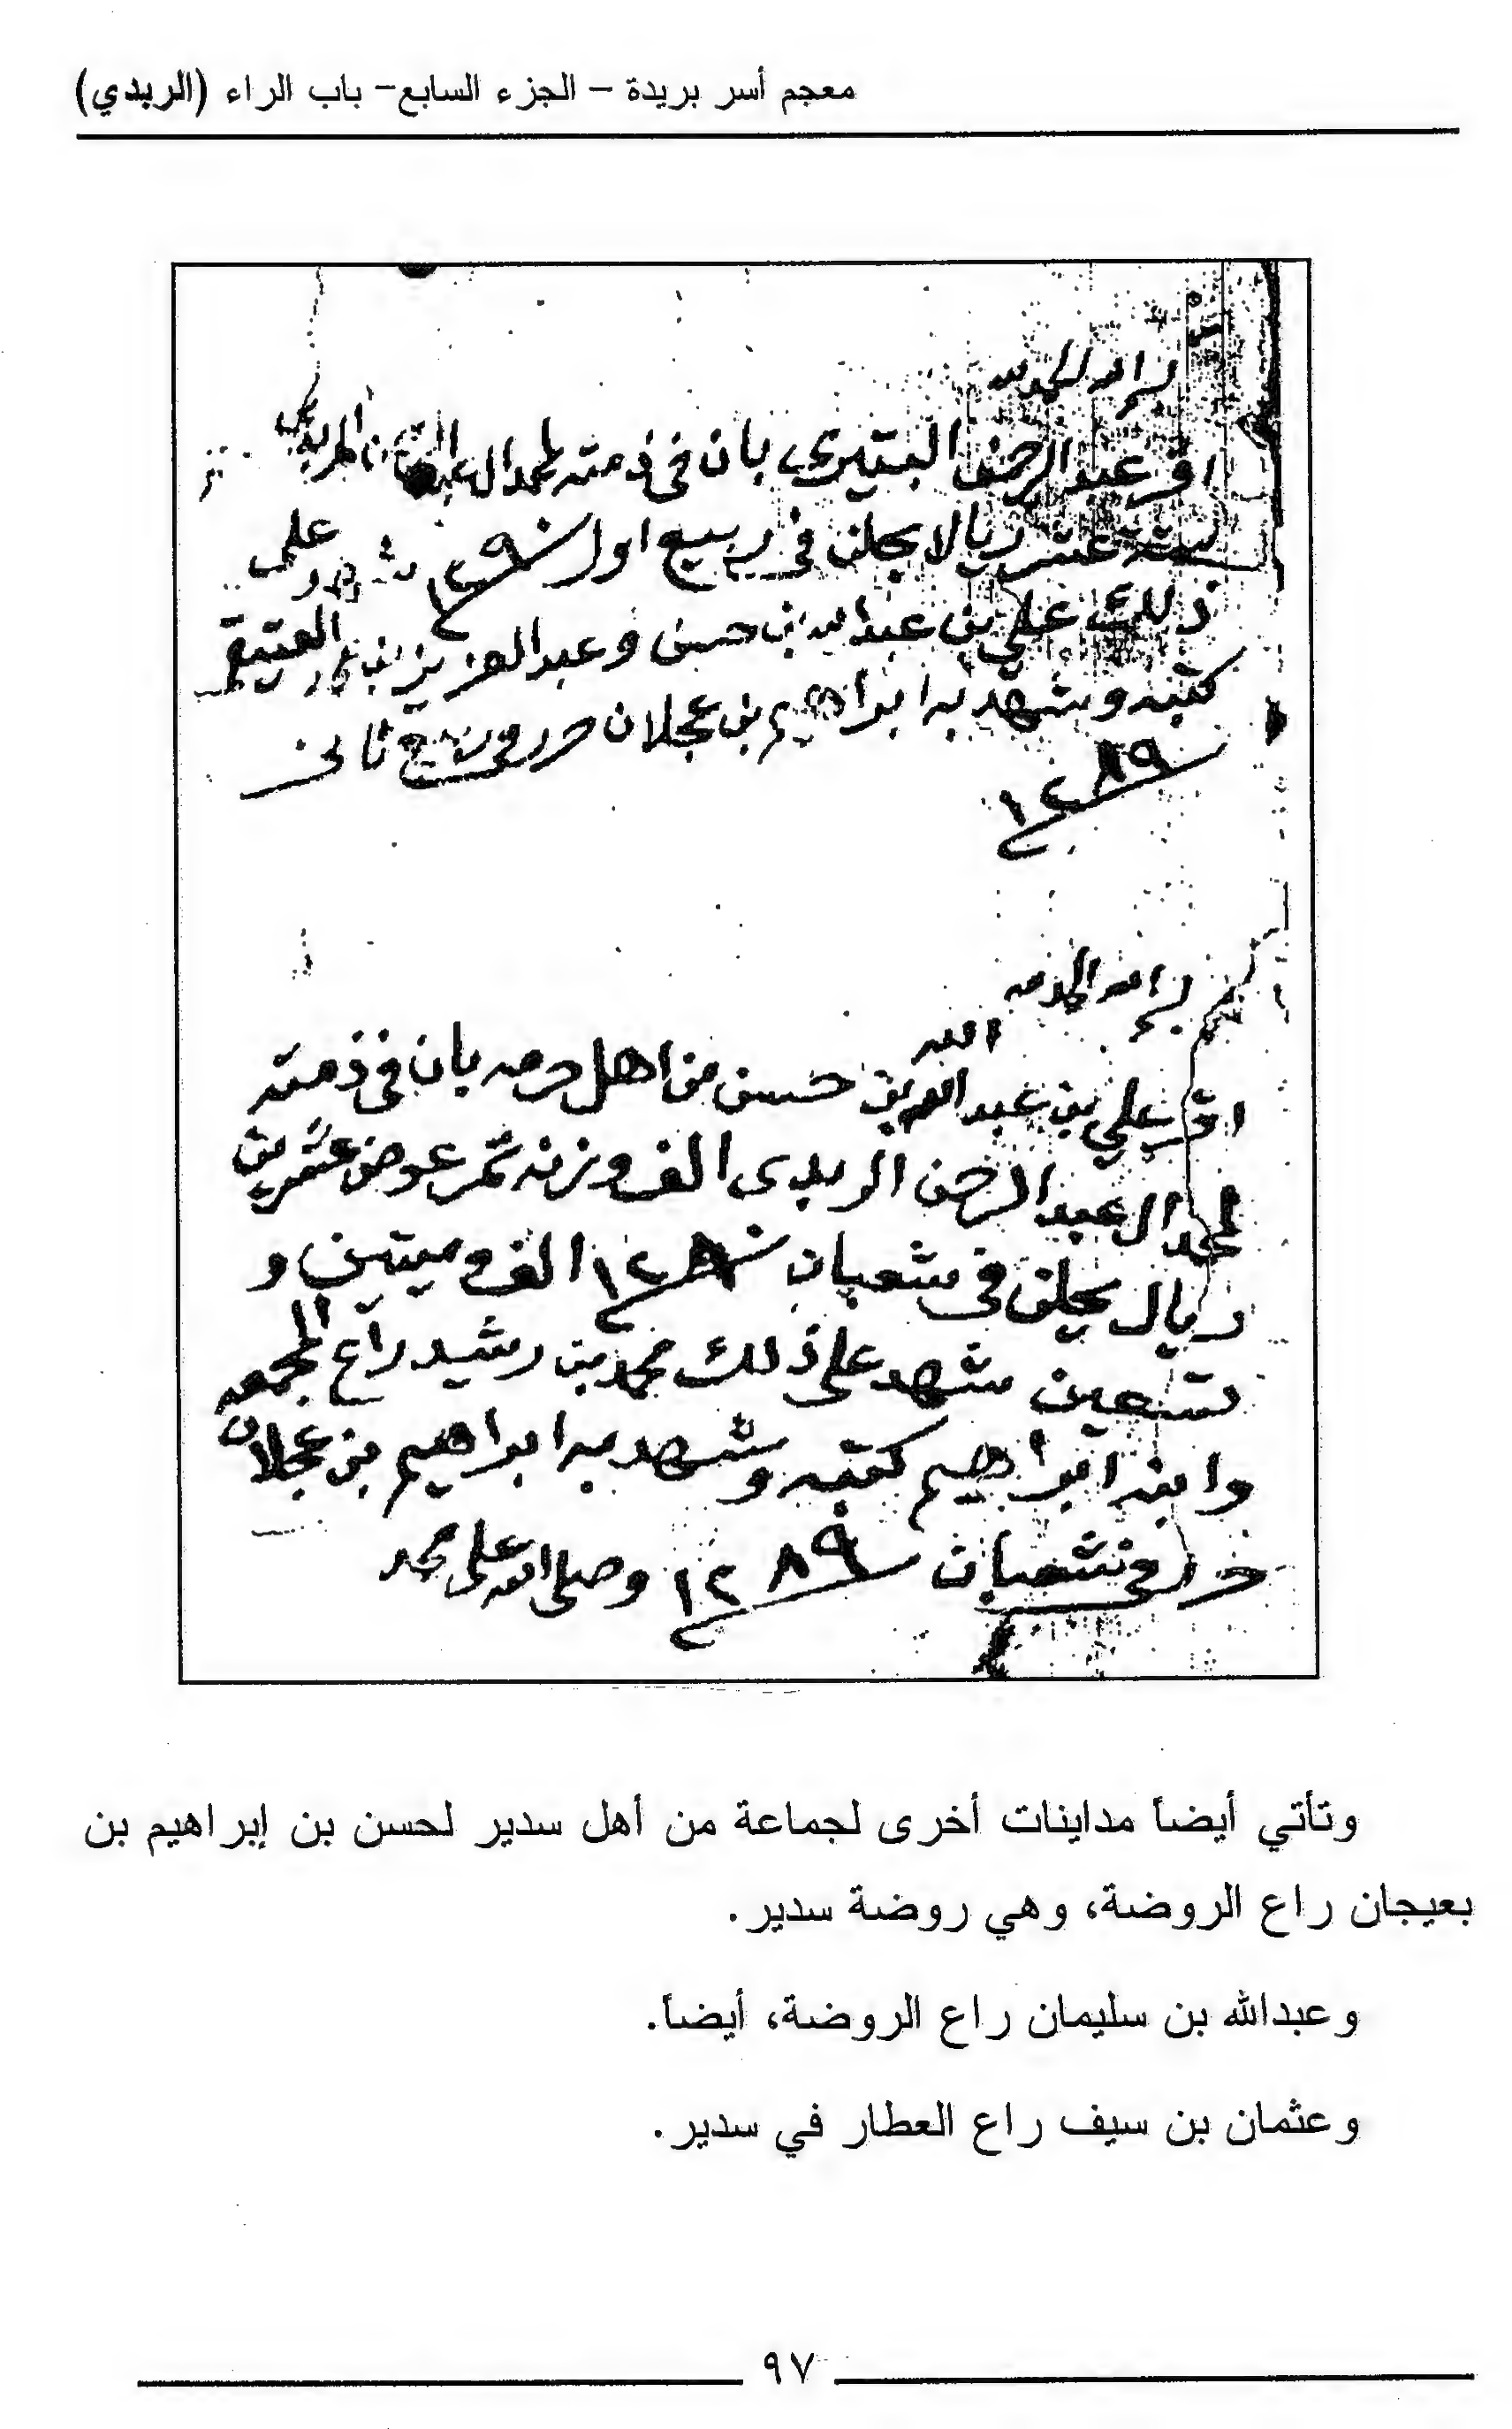 معجم أسر بريدة – الجزء السابع– باب الراء (الربدي)
الحمد لله
اقر عبدالرحمن البتيري بان في ذمته لمحمد ال الربدي
ستة عشر ريالا يحلن في ربيع اول سنة ١٢٩ شهد على
ذلك علي بن عبدالله بن حسن وعبدالعزيز بن العتيقي
كتبه وشهد به ابراهيم بن عجلان حرر في ربيع ثاني
سنة ١٢٨٩
الحمد لله
اقر علي بن عبد الله بن حسن من اهل حرمه بان في ذمته
لمحمد ال عبدالرحمن الربدي الف وزنه تمر عوض عشرين
ريال يحلن في شعبان سنة الف وميتين و
تسعين شهد على ذلك محمد بن رشيد راع المجمعه
وابنه ابراهيم كتبه وشهد به ابراهيم بن عجلان
حرر في شعبان سنة ١٢٨٩ وصلى الله على محمد
وتأتي أيضاً مداينات أخرى لجماعة من أهل سدير لحسن بن إبراهيم بن
بعيجان راع الروضة، وهي روضة سدير.
وعبدالله بن سليمان راع الروضة، أيضاً.
وعثمان بن سيف راع العطار في سدير.
٩٧